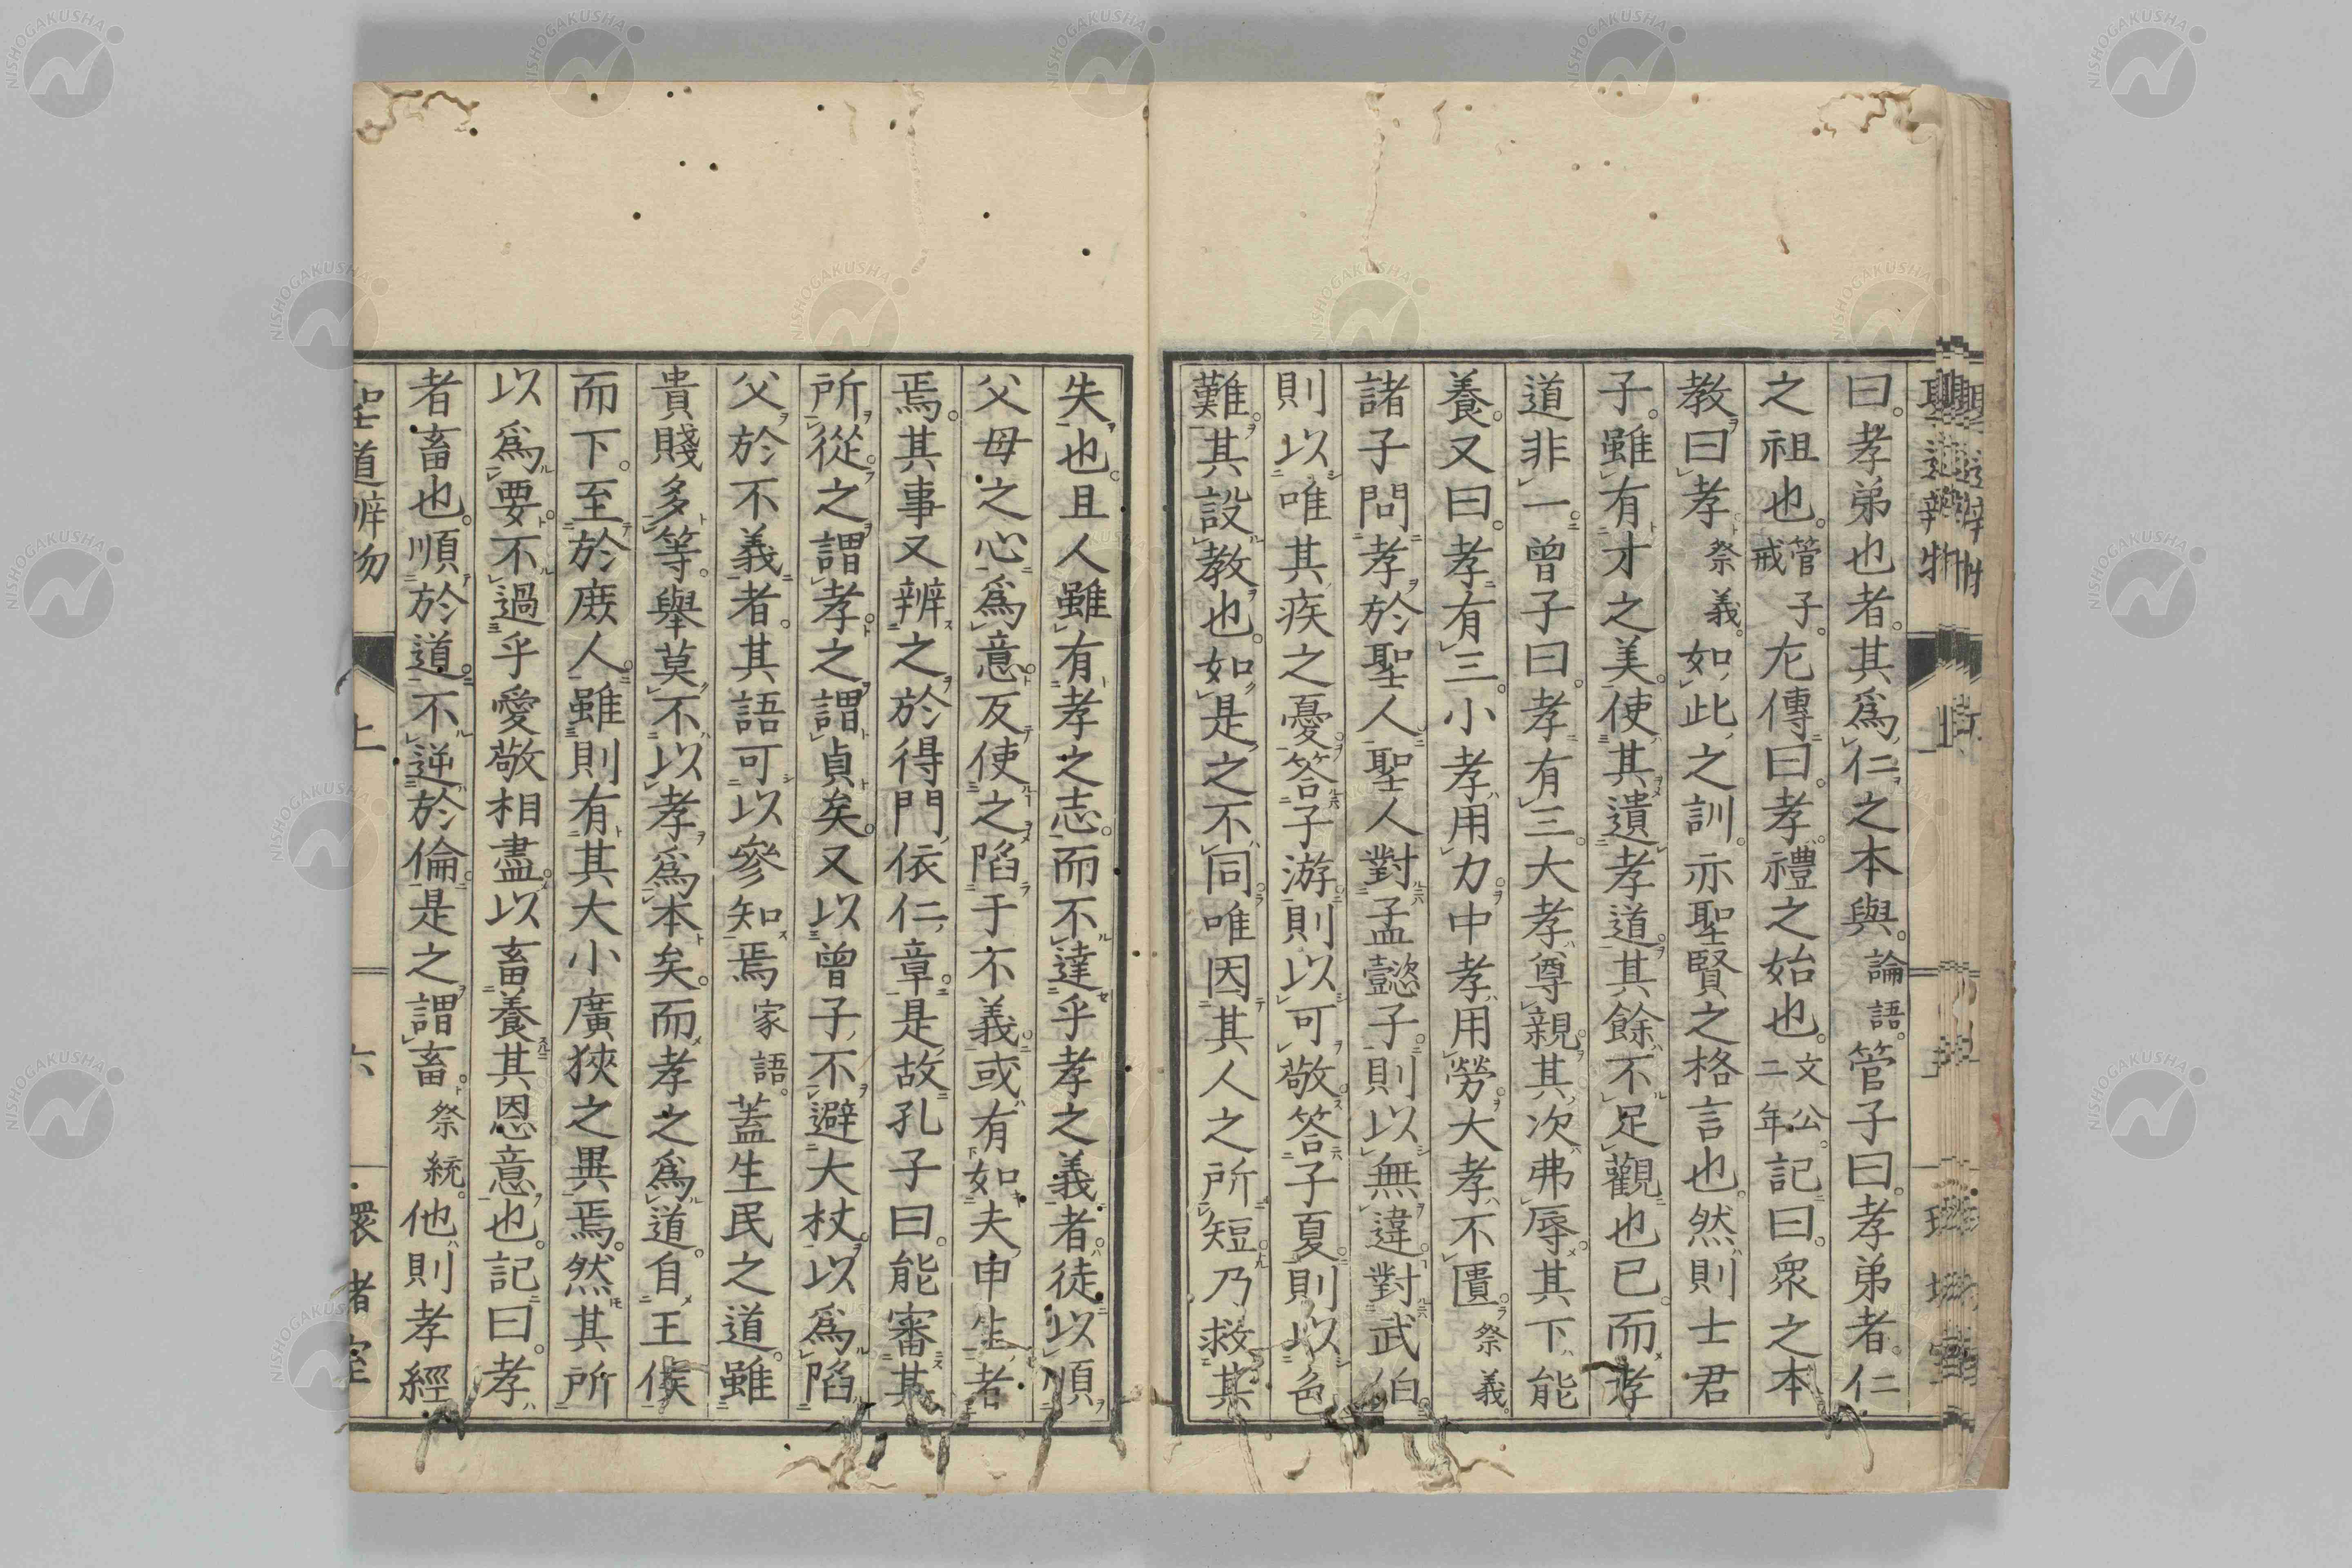 曰孝弟也者其爲仁之本與論語管子曰孝弟者仁
之祖也管子戒左傳曰孝禮之始也文公二年記曰衆之本
教曰孝祭義如此之訓亦聖賢之格言也然則士君
子雖有才之美使其遺孝道其餘不足觀也已而孝
道非一曾子曰孝有三大孝尊親其次弗辱其下能
養又曰孝有三小孝用力中孝用勞大孝不匱祭義
諸子問孝於聖人聖人對孟懿子則以無違對武伯
則以唯其疾之憂答子游則以可敬答子夏則以色
難其設教也如是之不同唯因其人之所短乃救其
失也且人雖有孝之志而不達乎孝之義者徒以順
父母之心爲意反使之陷于不義或有如夫申生者
焉其事又辨之於得門依仁章是故孔子曰能審其
所從之謂孝之謂貞矣又以曾子不避大杖以爲陷
父於不義者其語可以參知焉家語蓋生民之道雖
貴賤多等舉莫不以孝爲本矣而孝之爲道自王侯
而下至於庶人雖則有其大小廣狹之異焉然其所
以爲要不過乎愛敬相盡以畜養其恩意也記曰孝
者畜也順於道不逆於倫是之謂畜祭統他則孝經
聖道辨物 上 六 環堵室